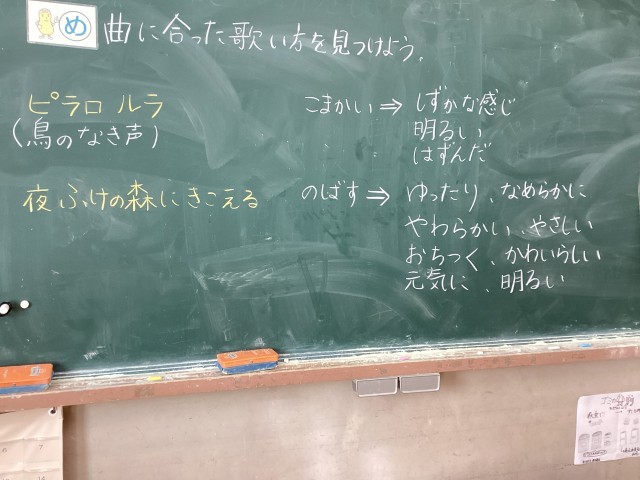 め 曲に合った歌い方を見つけよう。
ピラロ ルラ
(鳥のなき声)
夜ふけの森にきこえる
こまかい⇒しずかな感じ
明るい
はずんだ
のばす⇒ゆったり、なめらかに
やわらかい、やさしい
おちつく、かわいらしい
元気に、明るい